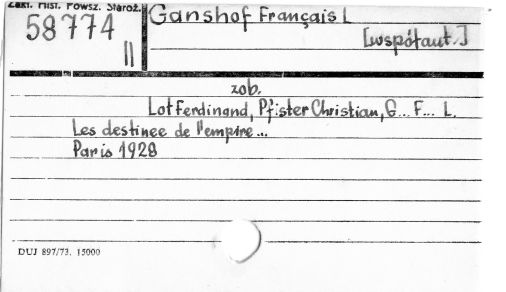 Zakł. Hist. Powsz. Staroż.
58774
II
Ganshof Français L
[współaut.]
zob.
Lot Ferdinand, Pfister Christian, G... F... L.
Les destinee de l'empire...
Paris 1928
DUJ 897/73. 15000